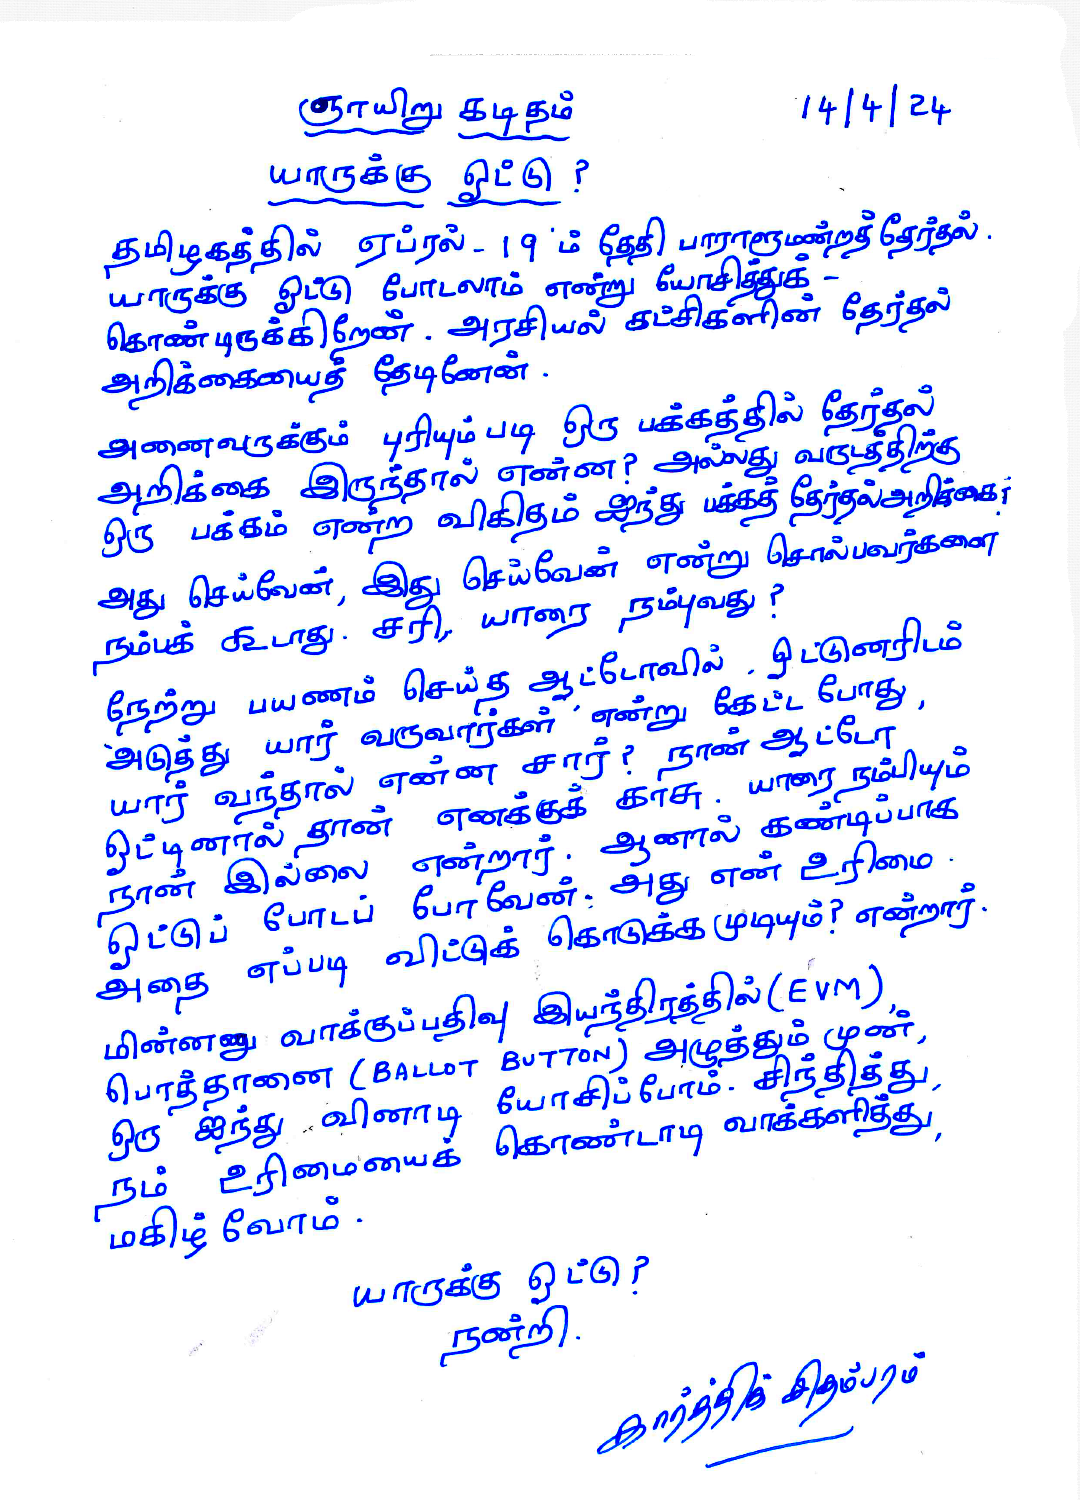 ஞாயிறு கடிதம் 14/4/24
யாருக்கு ஓட்டு?
தமிழகத்தில் ஏப்ரல் - 19'ம் தேதி பாராளுமன்றத் தேர்தல்.
யாருக்கு ஓட்டு போடலாம் என்று யோசித்துக் -
கொண்டிருக்கிறேன். அரசியல் கட்சிகளின் தேர்தல்
அறிக்கையைத் தேடினேன்.
அனைவருக்கும் புரியும்படி ஒரு பக்கத்தில் தேர்தல்
அறிக்கை இருந்தால் என்ன? அல்லது வருடத்திற்கு
ஒரு பக்கம் என்ற விகிதம் ஐந்து பக்கத் தேர்தல் அறிக்கை?
அது செய்வேன், இது செய்வேன் என்று சொல்பவர்களை
நம்பக் கூடாது. சரி, யாரை நம்புவது?
நேற்று பயணம் செய்த ஆட்டோவில், ஓட்டுனரிடம்
'அடுத்து யார் வருவார்கள்' என்று கேட்ட போது,
யார் வந்தால் என்ன சார்? நான் ஆட்டோ
ஓட்டினால் தான் எனக்குக் காசு. யாரை நம்பியும்
நான் இல்லை என்றார். ஆனால் கண்டிப்பாக
ஓட்டுப் போடப் போவேன். அது என் உரிமை.
அதை எப்படி விட்டுக் கொடுக்க முடியும்? என்றார்.
மின்னணு வாக்குப்பதிவு இயந்திரத்தில் (EVM),
பொத்தானை (BALLOT BUTTON) அழுத்தும் முன்,
ஒரு ஐந்து வினாடி யோசிப்போம். சிந்தித்து,
நம் உரிமையைக் கொண்டாடி வாக்களித்து,
மகிழ்வோம்.
யாருக்கு ஓட்டு?
நன்றி.
கார்த்திக் சிதம்பரம்